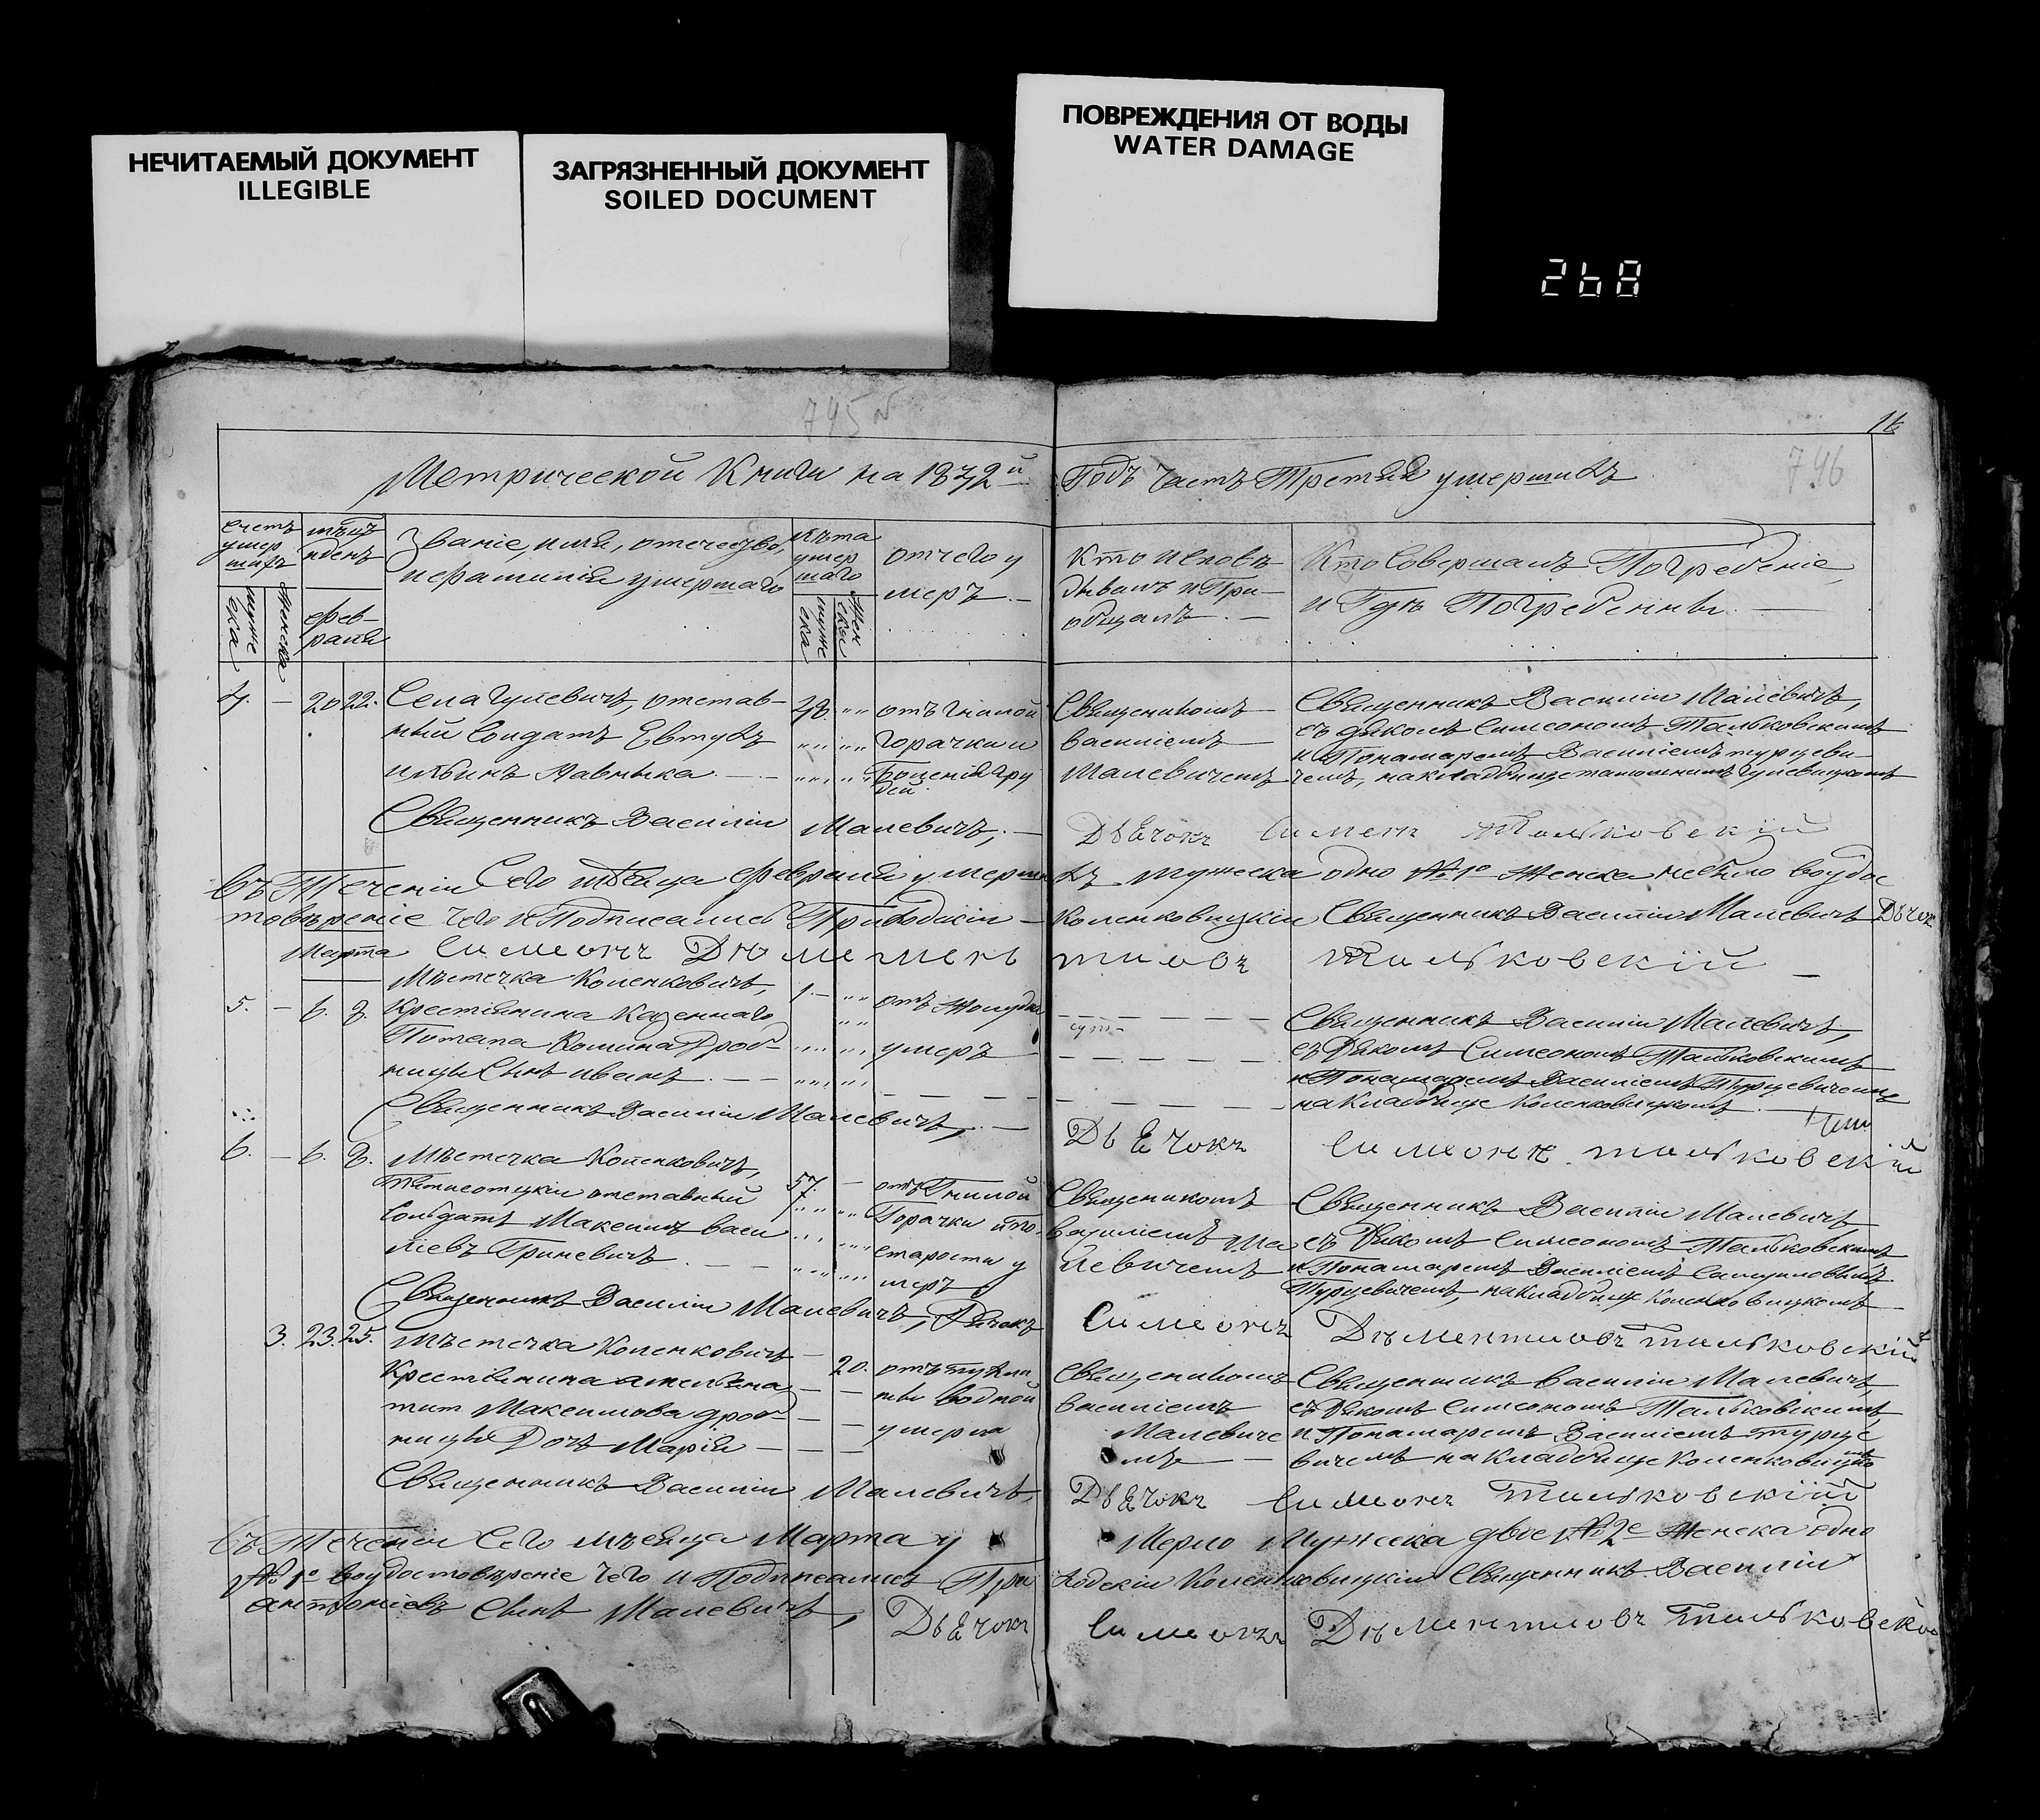 НЕЧИТАЕМЫЙ ДОКУМЕНТ
ILLEGIBLE
ЗАГРЯЗНЕННЫЙ ДОКУМЕНТ
SOILED DOCUMENT
ПОВРЕЖДЕНИЯ ОТ ВОДЫ
WATER DAMAGE
268
745
16
746
Метрической Книги на 1872й Годъ часть Третяя умершихъ
Счетъ умершихъ
мужеска
женска
мѣсяцъ и день
февраля
Званіе, имя, отечество,
и фамилія умершаго
Лѣта умершаго
мужеска
женска
отчего умеръ.
Кто исповѣдывалъ и Приобщалъ.
Кто Совершалъ Погребеніе,
и Гдѣ Погребенны.
4. — 20 22. Села Гулевичъ, отстав-
ный Солдатъ Евтухъ
отъ гнилой
горачки и
Священикомъ
Василіемъ
Малевичемъ
Священникъ Василій Малевичъ,
съ дякомъ Симеономъ Тальковскимъ
и Понамаремъ Василіемъ турцеви-
чемъ, на кладбище
Священникъ Василій Малевичъ, Дьячокъ Симеонъ Тальковскій
Въ Теченіи Сего мѣсяца февраля умершихъ мужеска одно № 1е Женска небыло воудос
товѣреніе чего и Подписались Приходскій Коленковицкій Священникъ Василій Малевичъ Дьячок
Марта
Симеонъ Дѣментиовъ Тальковскій
5. — 6. 8. Мѣстечка Коленковичъ,
Крестянина Казеннаго
Потапа
ницы Сынъ иванъ.
1.
умеръ
Священникъ Василій Малевичъ,
съ Дякомъ Симеономъ Тальковскимъ
и Понамаремъ Василіемъ Турцевичемъ
на Кладбище Коленковицкомъ
Священникъ Василій Малевичъ, Дьячокъ Симеонъ Тальковскій
6. — 6. 8. Мѣстечка Коленковичъ,
отставный
Солдатъ Максимъ Васи
ліевъ Гриневичъ
57.
отъ Гнилой
Горачки и по
старости у
меръ
Священикомъ
Василіемъ Ма
левичемъ
Священникъ Василій Малевичъ
съ Дякомъ Симеономъ Тальковскимъ
и Понамаремъ Василіемъ
Турцевичемъ, на кладбище Коленковицкомъ
Священникъ Василій Малевичъ, Дьячокъ Симеонъ Дѣментиовъ Тальковскій
3. 23. 25. Мѣстечка Коленковичъ
Крестянина
Максимова
ницы Дочъ Марія
20.
водной
умерла
Священикомъ
Василіемъ
Малевиче
мъ
Священникъ Василій Малевичъ,
съ Дякомъ Симеономъ Тальковскимъ,
и Понамаремъ Василіемъ турце
вичемъ на Кладбище Коленковицкомъ
Священникъ Василій Малевичъ, Дьячокъ Симеонъ Тальковскій
Въ Теченіи Сего мѣсяца Марта у мерло Мужеска двое № 2е Женска одно
№ 1е воудостовѣреніе чего и Подписались При ходскій Коленковицкій Священникъ Василій
антоніевъ Сынъ Малевичъ, Дьячокъ Симеонъ Дѣментиовъ Тальковскій